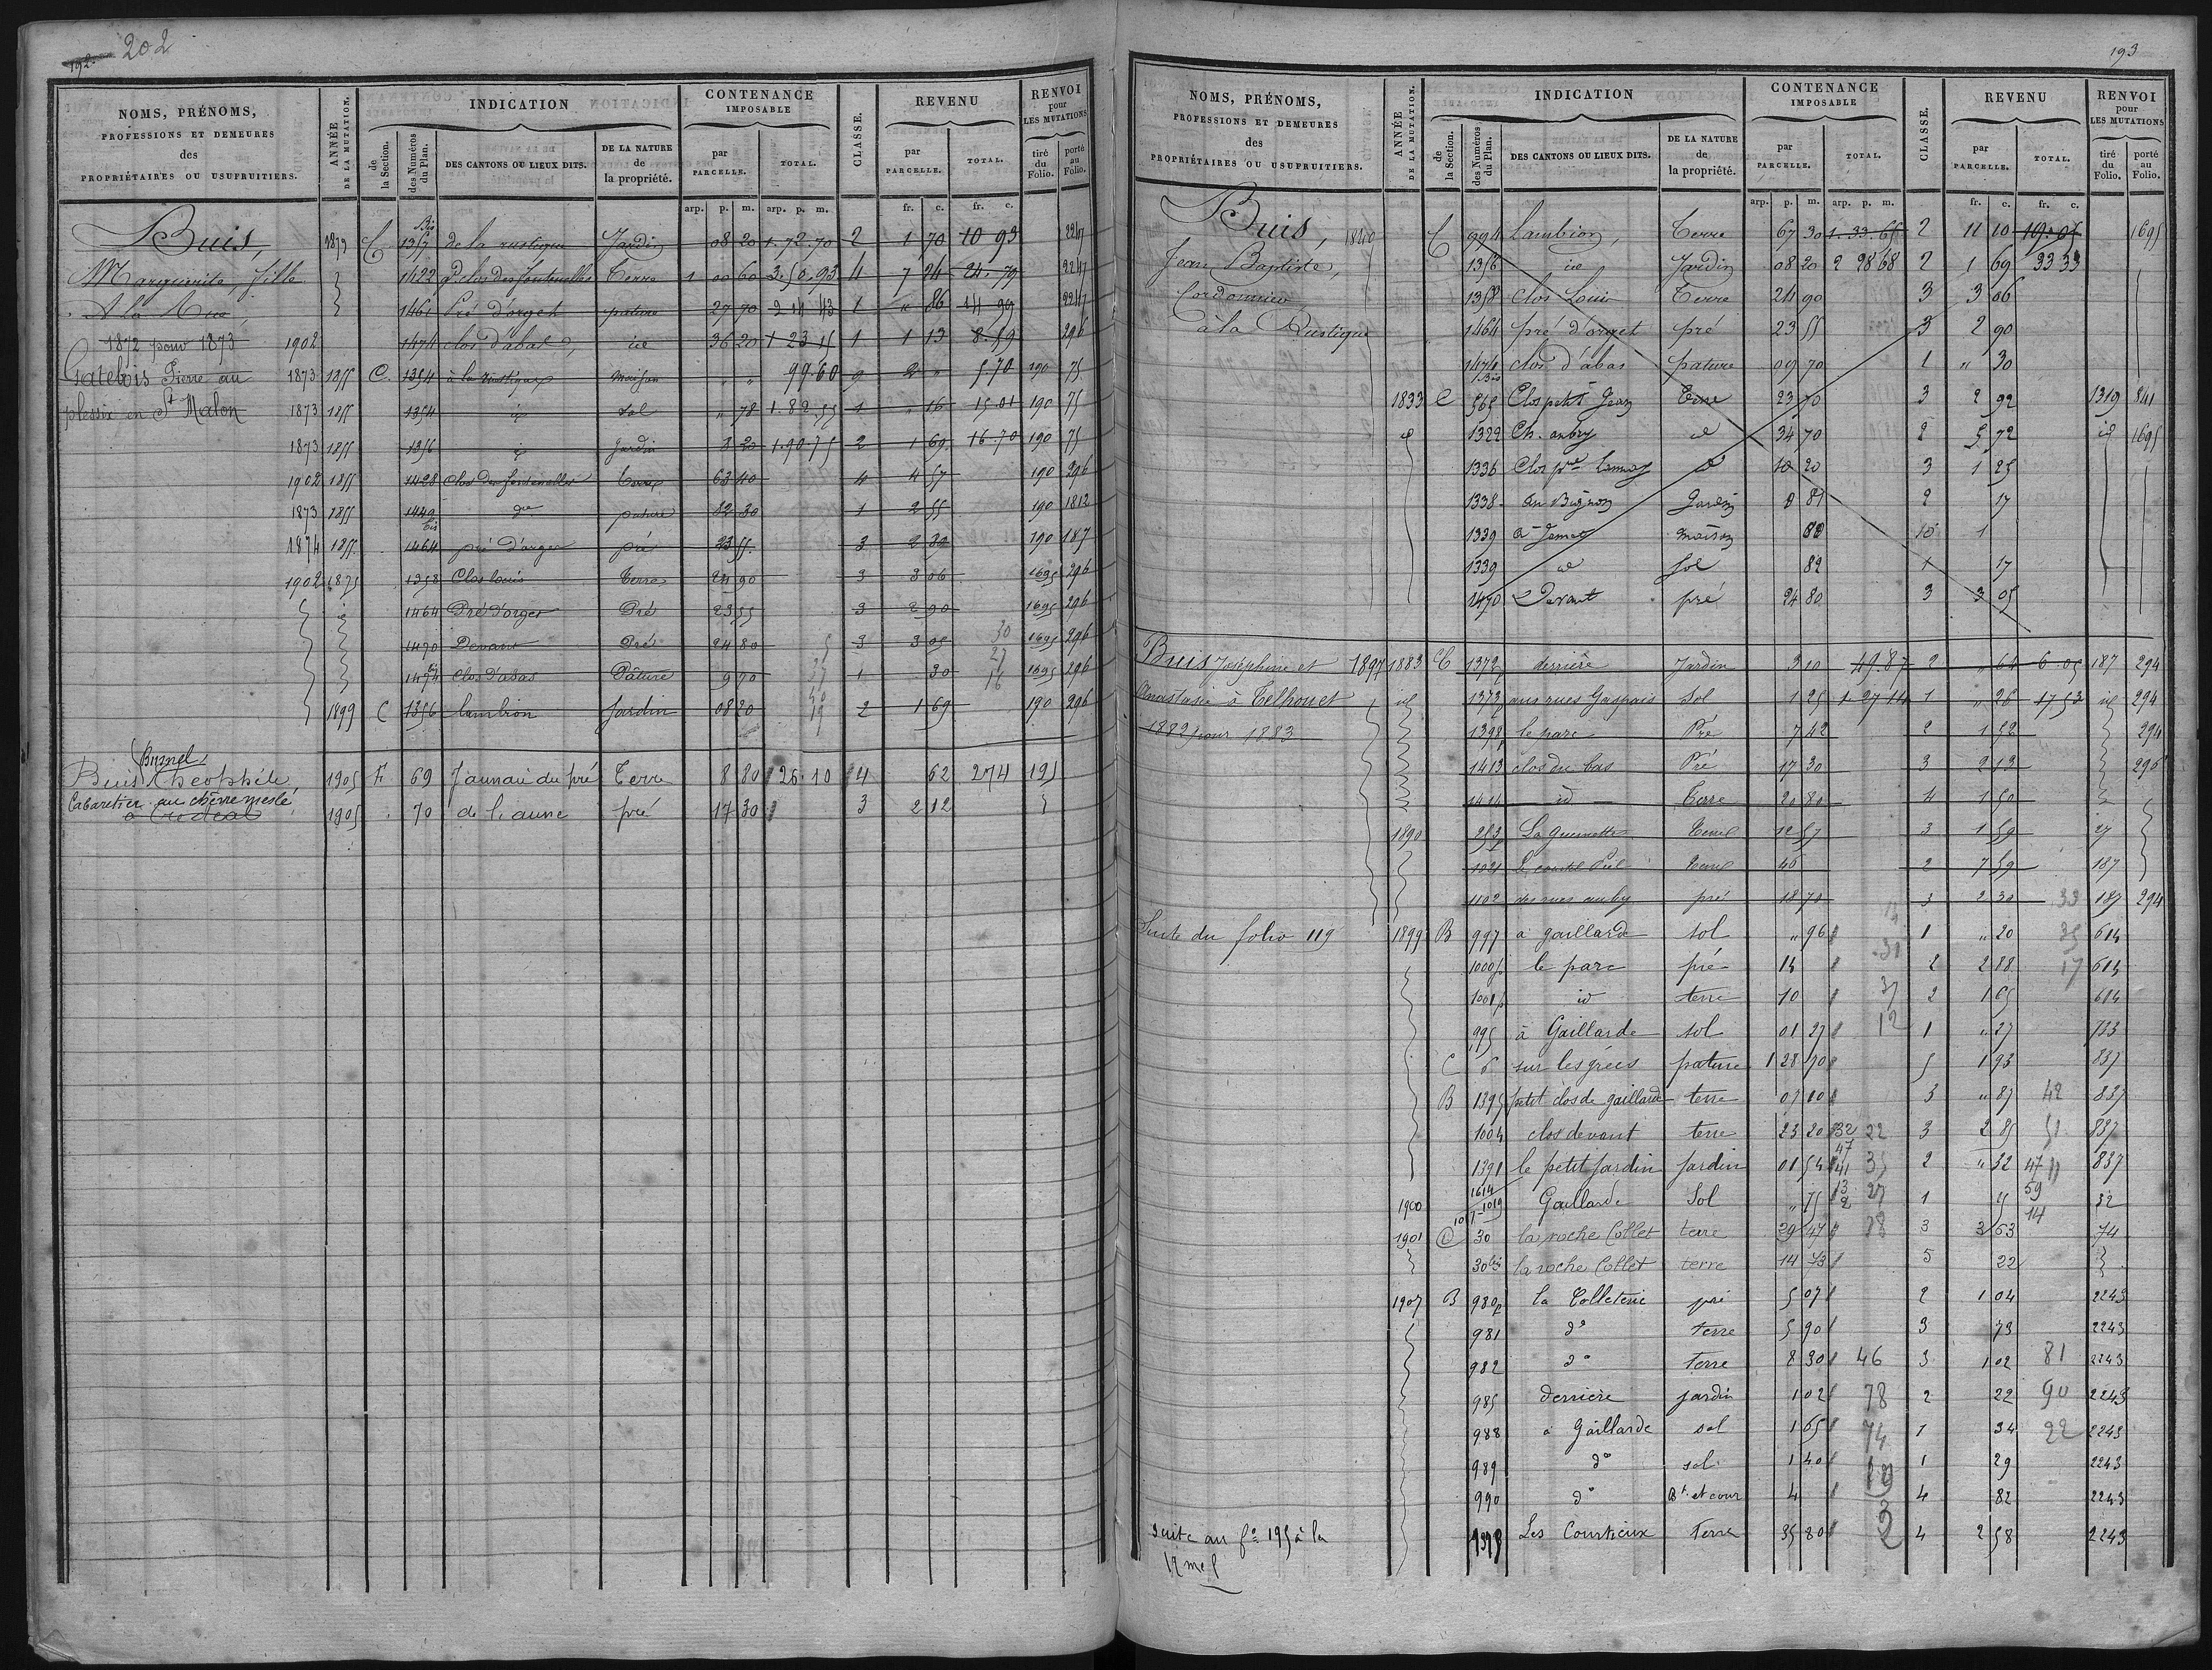 192. 202
NOMS, PRÉNOMS, PROFESSIONS ET DEMEURES des PROPRIÉTAIRES OU USUFRUITIERS.
ANNÉE DE LA MUTATION.
INDICATION
de la Section.
des Numéros du Plan.
DES CANTONS OU LIEUX DITS.
DE LA NATURE de la propriété.
CONTENANCE IMPOSABLE
par PARCELLE.
TOTAL.
CLASSE.
REVENU
par PARCELLE.
TOTAL.
RENVOI pour LES MUTATIONS
tiré du Folio.
porté au Folio.
arp. p. m. arp. p. m. fr. c. fr. c.
Buis, 1872 C 1357 Bis de la rustique Jardin 08 20 1.72.70 2 1 70 10 93 2247
Marguerite, fille 1422 gd clos des fontenelles Terre 1 00 60 3.50.93 4 7 24 24.79 2247
A la Rue 1461 Pré d'orget pature 27 70 2 14 43 1 " 86 14 99 2247
1872 pour 1873 1902 1474 clos d'abas id 36 20 1 23 15 1 1 13 8.59 296
Gatebois Pierre au 1873 1855 C. 1354 à la rustique maison " " 99.60 9 2 " 5.70 190 75
plessix en St Malon 1873 1855 1354 id sol " 78 1.82.55 1 " 16 15.01 190 75
1873 1855 1356 id Jardin 8 20 1.90.75 2 1 69 16.70 190 75
1902 1855 1428 clos des fontenelles Terre 63 40 4 4 57 190 296
1873 1855 1449 bis do pature 82 30 1 2 55 190 1812
1874 1855 1464 pré d'orger pré 23 55 3 2 30 190 187
1902 1875 1358 Clos louis Terre 24 90 3 3 06 1695 296
id 1464 Pré d'orger Pré 23 55 3 2 90 1695 296
1470 Devant Pré 24 80 3 3 05 1695 296
1474 bis Clos d'abas Pâture 9 70 1 30 1695 296
1899 C 1356 lambion Jardin 08 20 2 1 69 190 296
Burnel
Buis Théophile 1905 F. 69 Jaunaie du pré Terre 8 80 26.10 4 62 2 74 195
Cabaretier au chêne meslé
à Crédéal 1905 70 de l'aune pré 17 30 3 2 12
193
NOMS, PRÉNOMS, PROFESSIONS ET DEMEURES des PROPRIÉTAIRES OU USUFRUITIERS.
ANNÉE DE LA MUTATION.
INDICATION
de la Section.
des Numéros du Plan.
DES CANTONS OU LIEUX DITS.
DE LA NATURE de la propriété.
CONTENANCE IMPOSABLE
par PARCELLE.
TOTAL.
CLASSE.
REVENU
par PARCELLE.
TOTAL.
RENVOI pour LES MUTATIONS
tiré du Folio.
porté au Folio.
arp. p. m. arp. p. m. fr. c. fr. c.
Buis, 1840 C 994 Lambion, Terre 67 30 1.33.65 2 11 10 19.05 1695
Jean Baptiste, 1356 id Jardin 08 20 2 28 68 2 1 69 33 33
Cordonnier 1358 Clos Louis Terre 24 90 3 3 06
à la Rustique 1464 pré d'orget pré 23 55 3 2 90
1474 Bis clos d'abas pature 09 70 1 " 30
1833 C 565 Clos petit Jean Terre 23 70 3 2 92 1319 841
id 1322 Ch. aubry id 34 70 2 5 72 id 1695
1336 id 10 20 3 1 25
1338 au Bignon Jardin 0 81 2 17
1339 maison 82 10 1
1339 id sol 82 1 17
1470 Devant pré 24 80 3 3 05
Buis Joséphine et 1897 1883 C 1372 derrière Jardin 3 10 49.87 2 " 64 6 05 187 294
Anastasie à Telhouet id 1373 aux rues Gaspais Sol 1 25 1.27 14 1 " 26 17 53 id 294
1882 pour 1883 1398 le parc Pré 7 42 2 1 52 294
1413 clos du bas Pré 17 30 3 2 13 296
1414 id Terre 20 80 4 1 50
1890 253 La guenette Terre 12 57 3 1 59 27
1021 Terre 46 2 7 59 187
1102 des rues auby pré 18 70 3 2 30 33 187 294
Suite du folio 119 1899 B 997 à gaillarde sol " 96 1 " 20 35 614
1000p le parc pré 14 31 2 2 88 17 614
1001p id terre 10 37 2 1 65 614
995 à Gaillarde sol 01 27 12 1 " 27 733
C 6 sur les grées pature 1 28 70 5 1 93 837
B 1395 petit clos de gaillarde terre 07 10 3 " 87 42 837
1004 clos devant terre 23 20 32 22 3 2 85 51 837
1391 le petit Jardin Jardin 01 54 47 41 35 2 " 32 47 11 837
1900 1614 7-1019 Gaillarde Sol " 75 13 2 27 1 15 59 32
1901 D 30 la roche Collet terre 29 47 78 3 3 63 14 74
30 bis la roche Collet terre 14 73 5 22
1907 B 980p la Colleterie pré 5 07 2 1 04 2243
981 do Terre 5 90 3 73 2243
982 do Terre 8 30 46 3 1 02 81 2243
985 derrière jardin 1 02 78 2 22 90 2243
988 à Gaillarde sol 1 65 74 1 34 22 2243
989 do sol 1 40 1 29 2243
990 do Bt. et cour 4 4 82 2243
suite au fo 195 à la 1398 Les Courtieux Terre 35 80 3 4 2 58 2243
12me l